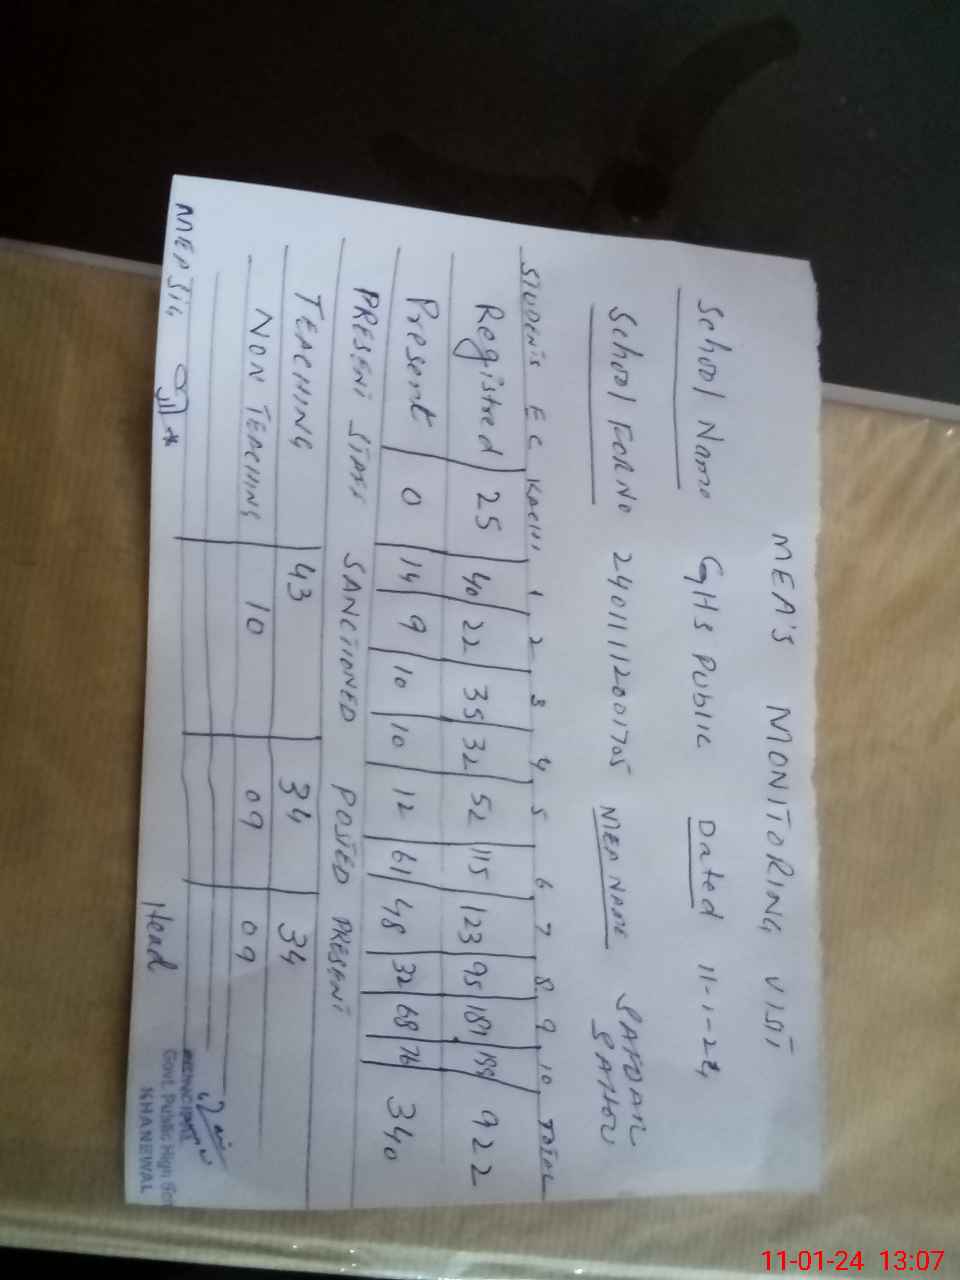 MEA'S MONITORING VISIT
School Name GHS PUBLIC Dated 11-1-24
School EMIS NO 24011112001705 MEA NAME SAFDAR
STUDENTS ECE KACHI 1 2 3 4 5 6 7 8 9 10 TOTAL
Registred 25 40 22 35 32 52 115 123 95 181 922
Present 0 14 9 10 10 12 61 48 32 68 76 340
PRESENT STAFF SANCTIONED POSTED PRESENT
TEACHING 43 34 34
NON TEACHING 10 09 09
MEA Sig Head
PRINCIPAL
Govt. Public High
KHANEWAL
11-01-24 13:07